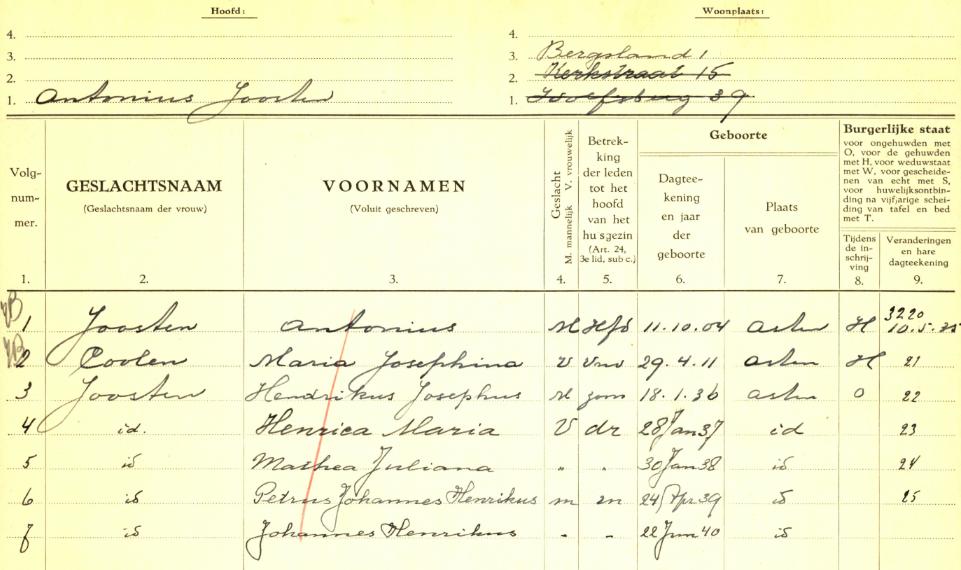 Hoofd: Woonplaats:
4. 4.
3. 3. Bergsland 1
2. 2. Kerkstraat 15
1. Antonius Joosten 1. Wolfsberg 39
Volg-
num-
mer.
GESLACHTSNAAM
(Geslachtsnaam der vrouw)
VOORNAMEN
(Voluit geschreven)
Geslacht
M. mannelijk V. vrouwelijk
Betrek-
king
der leden
tot het
hoofd
van het
huisgezin
(Art. 24,
3e lid, sub c.)
Geboorte
Dagtee-
kening
en jaar
der
geboorte
Plaats
van geboorte
Burgerlijke staat
voor ongehuwden met
O, voor de gehuwden
met H, voor weduwstaat
met W, voor gescheide-
nen van echt met S,
voor huwelijksontbin-
ding na vijfjarige schei-
ding van tafel en bed
met T.
Tijdens
de in-
schrij-
ving
Veranderingen
en hare
dagteekening
1. 2. 3. 4. 5. 6. 7. 8. 9.
VB 3220
1 Joosten Antonius M Hfd 11.10.04 Asten H 10.5.35
VB
2 Coolen Maria Josephina V vrw 29.4.11 Asten H 21
3 Joosten Hendrikus Josephus M zoon 18.1.36 Asten O 22
4 id. Henrica Maria V dr 28 Jan 37 id 23
5 id Mathea Juliana " " 30 Jan 38 id 24
6 id Petrus Johannes Henrikus m zn 24 Apr. 39 id 25
7 id Johannes Henrikus " " 22 Jun 40 id